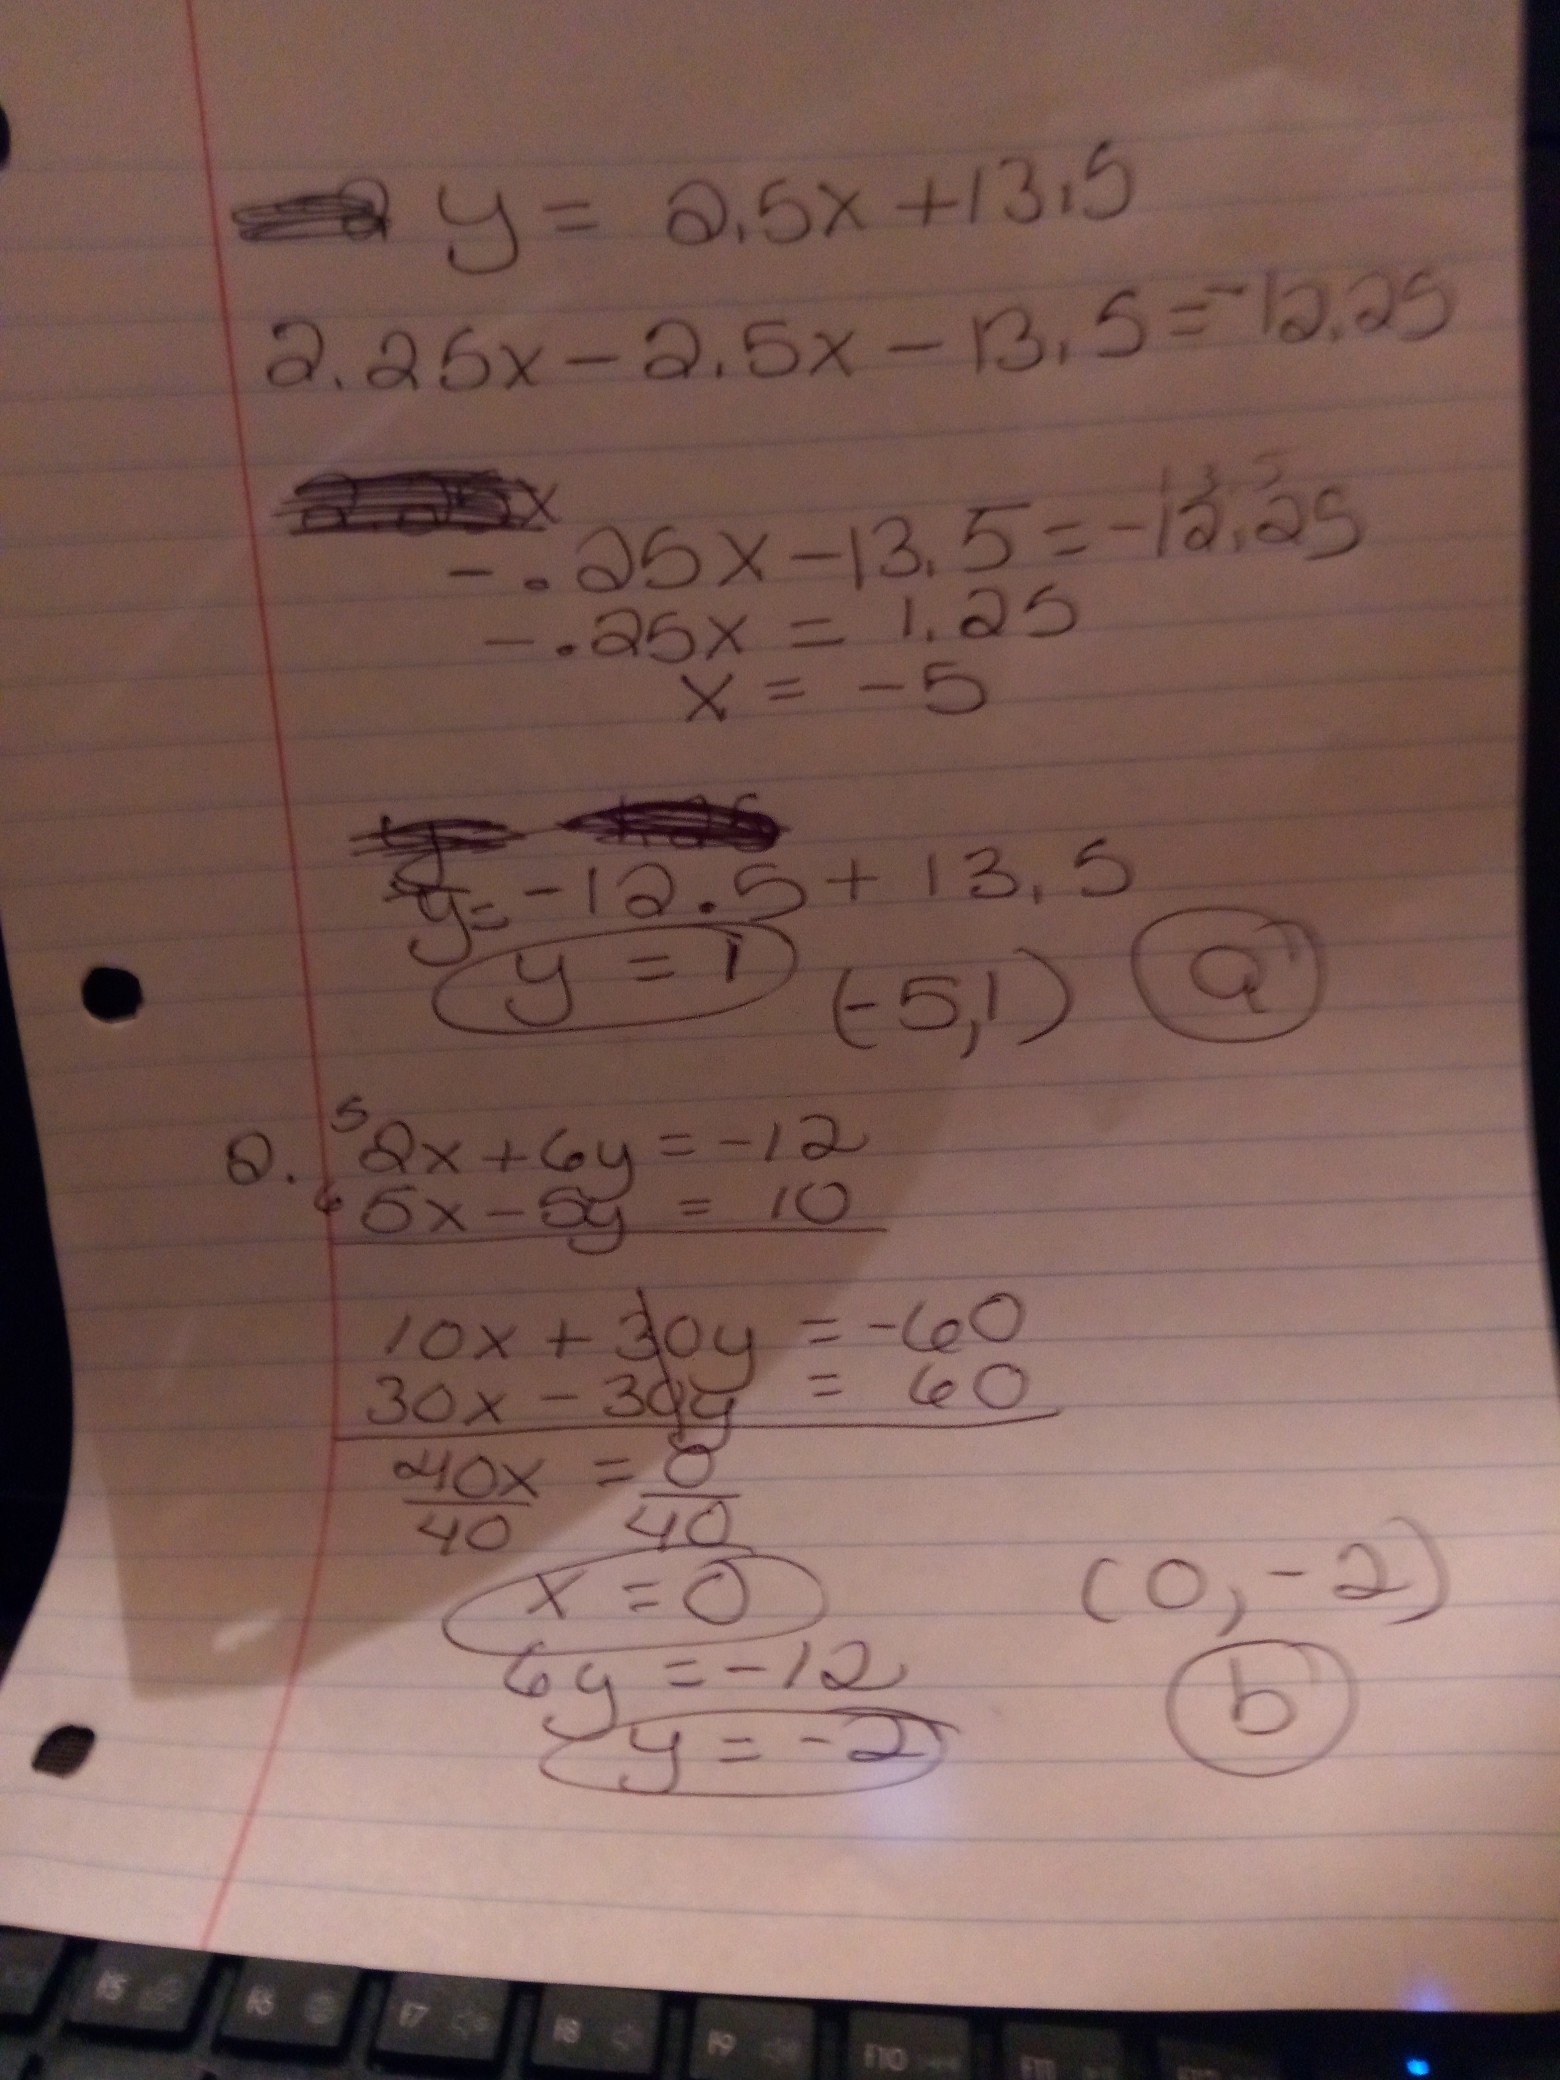 y = 2.5x + 13.5
2.25x - 2.5x - 13.5 = -12.25
13.5
-.25x - 13.5 = -12.25
-.25x = 1.25
x = -5
y = -12.5 + 13.5
y = 1 (-5,1) a
2. 5 2x + 6y = -12
6 5x - 5y = 10
10x + 30y = -60
30x - 30y = 60
40x = 0
40 40
x = 0 (0, -2)
6y = -12 b
y = -2
F5 F6 F7 F8 F9 F10 F11